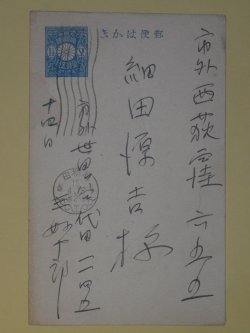 郵便はかき
市外西荻窪六五五
細田源吉様
市外世田谷代田一一四五
十四日
三好十郎